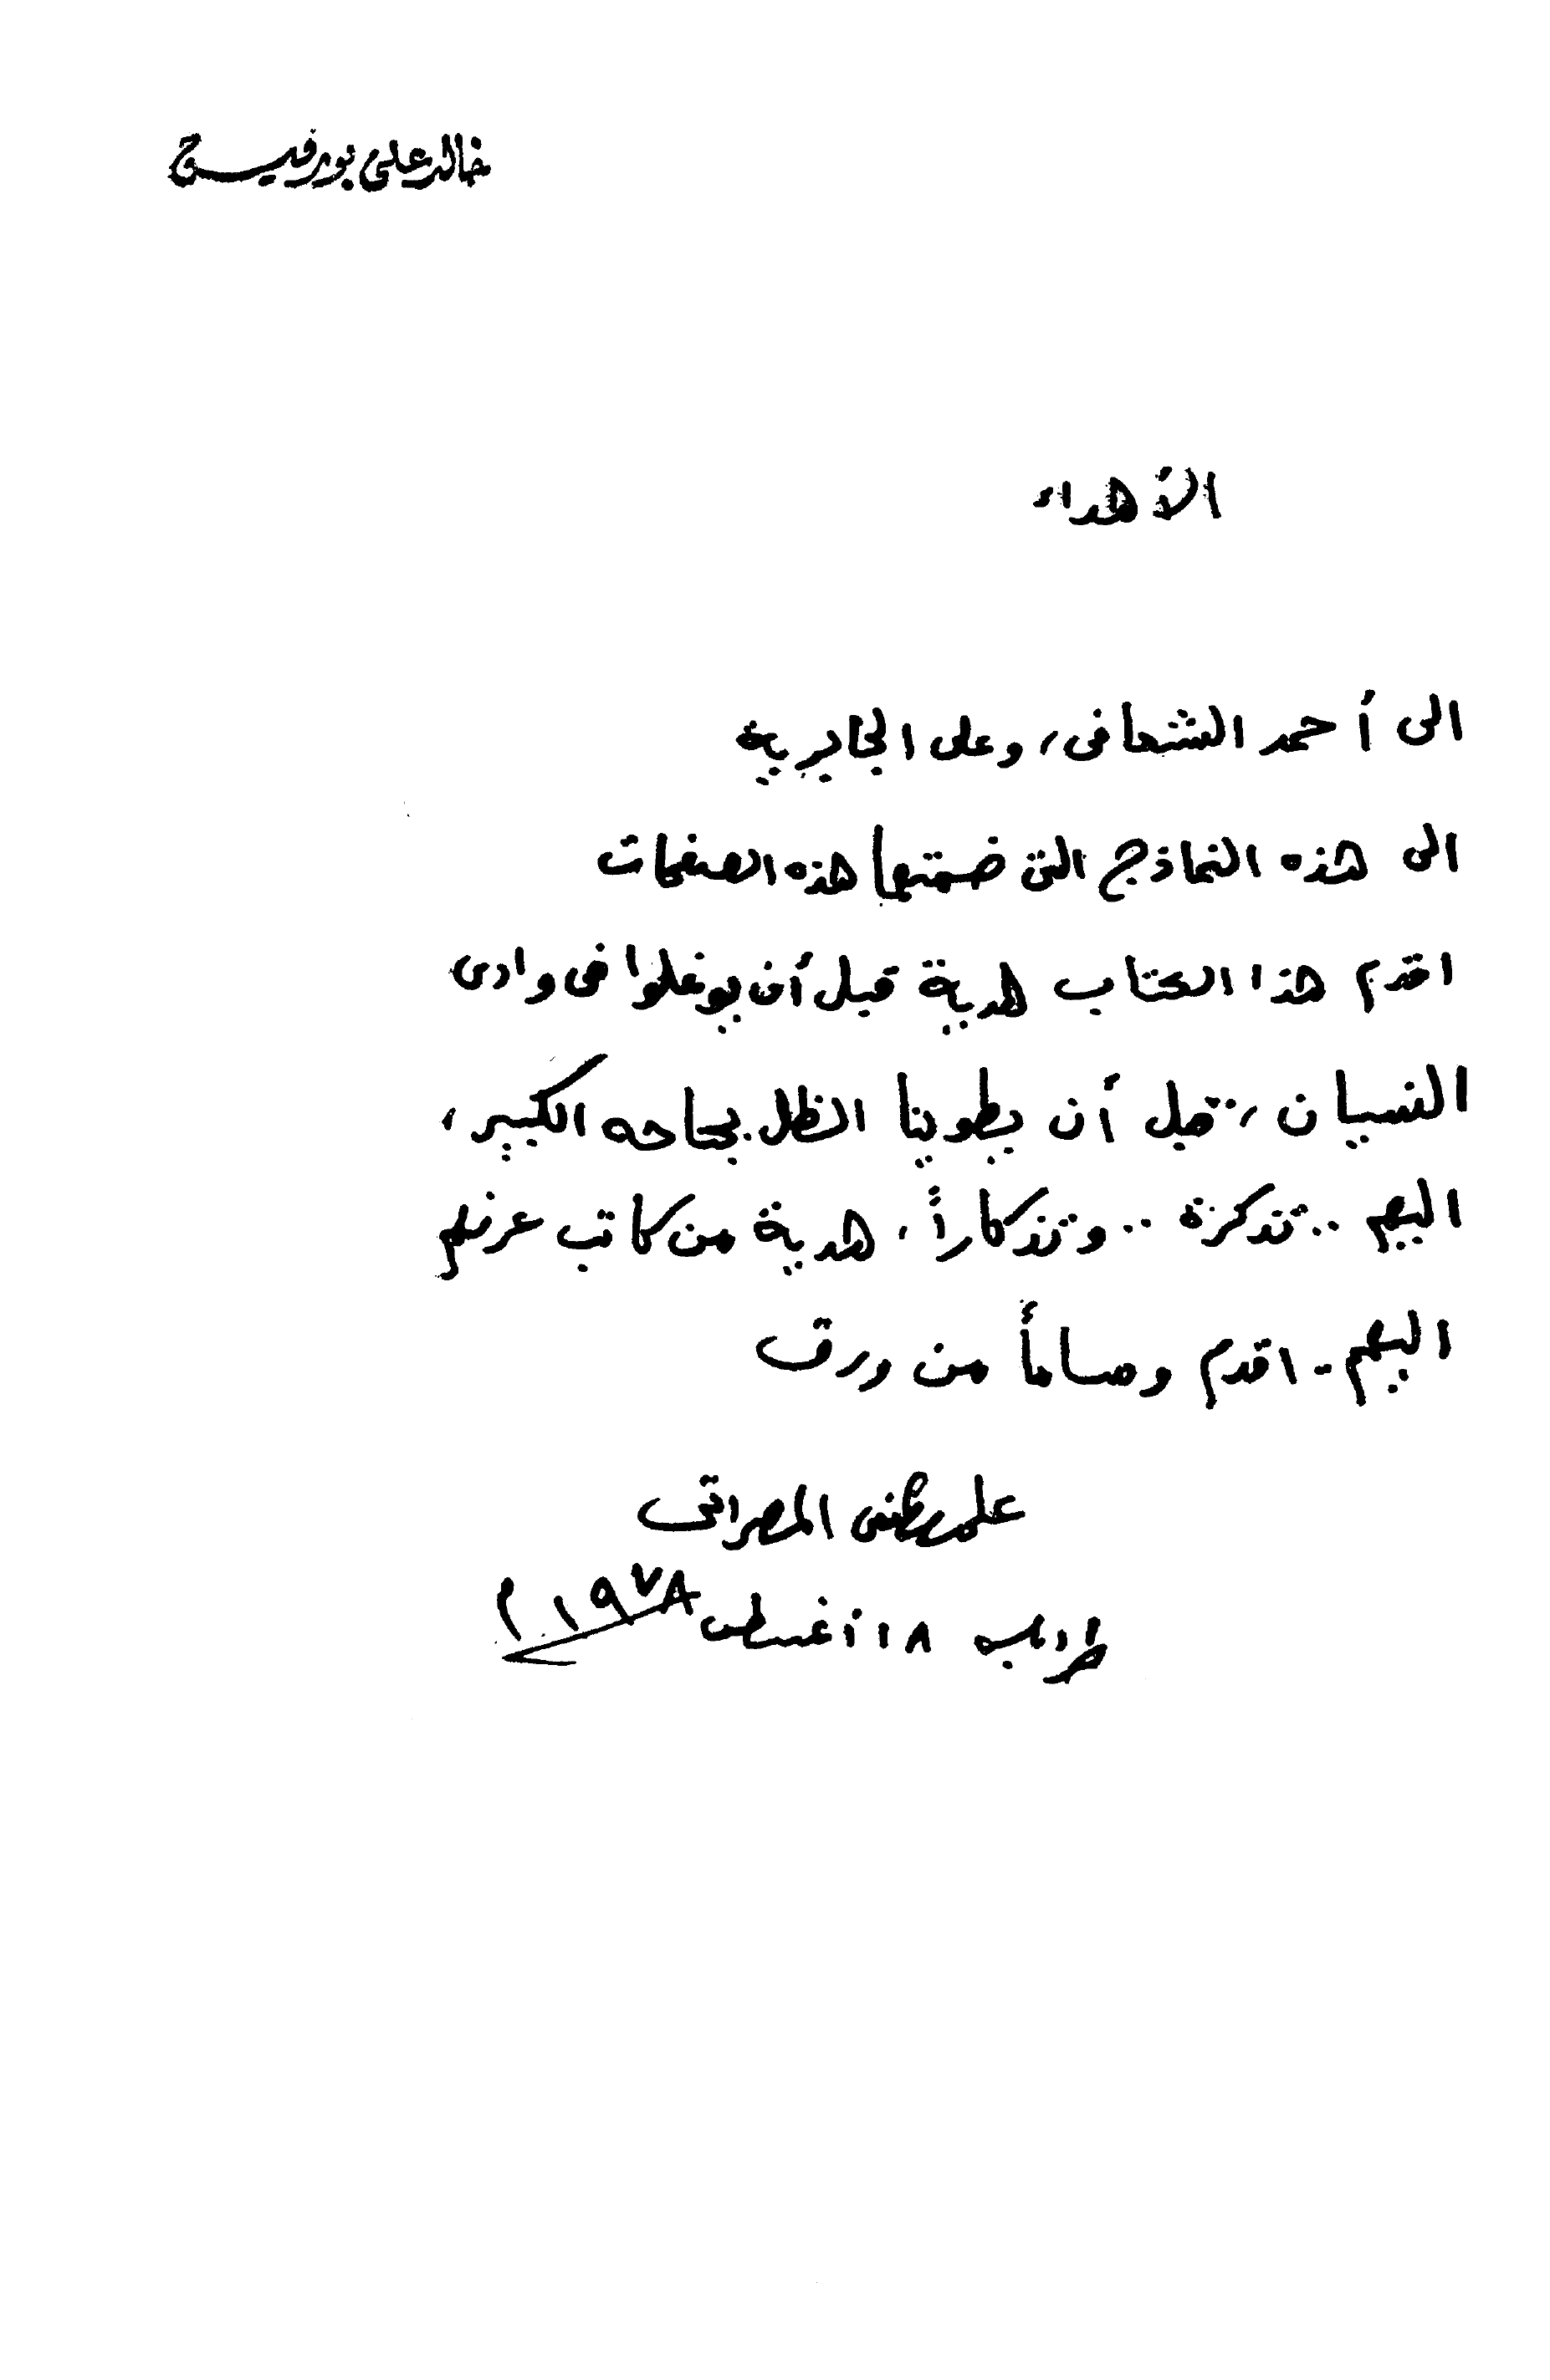 خالد على بورقيسة
الأهداء
الى أحمد الشتعافى، وعلى الجابرية
الى هذه النماذج التى ضمتها هذه الصفحات
اقدم هذا الكتاب هدية قبل أن يوغلوا فى وادى
النسيان، قبل أن يطوينا الظل بجناحه الكبير،
اليهم .. تذكرة .. وتذكاراً، هدية من كاتب عرفهم
اليهم .. اقدم وساماً من ورق
على مصطفى المصراتى
طرابلس ١٨ أغسطس ١٩٧٨ م